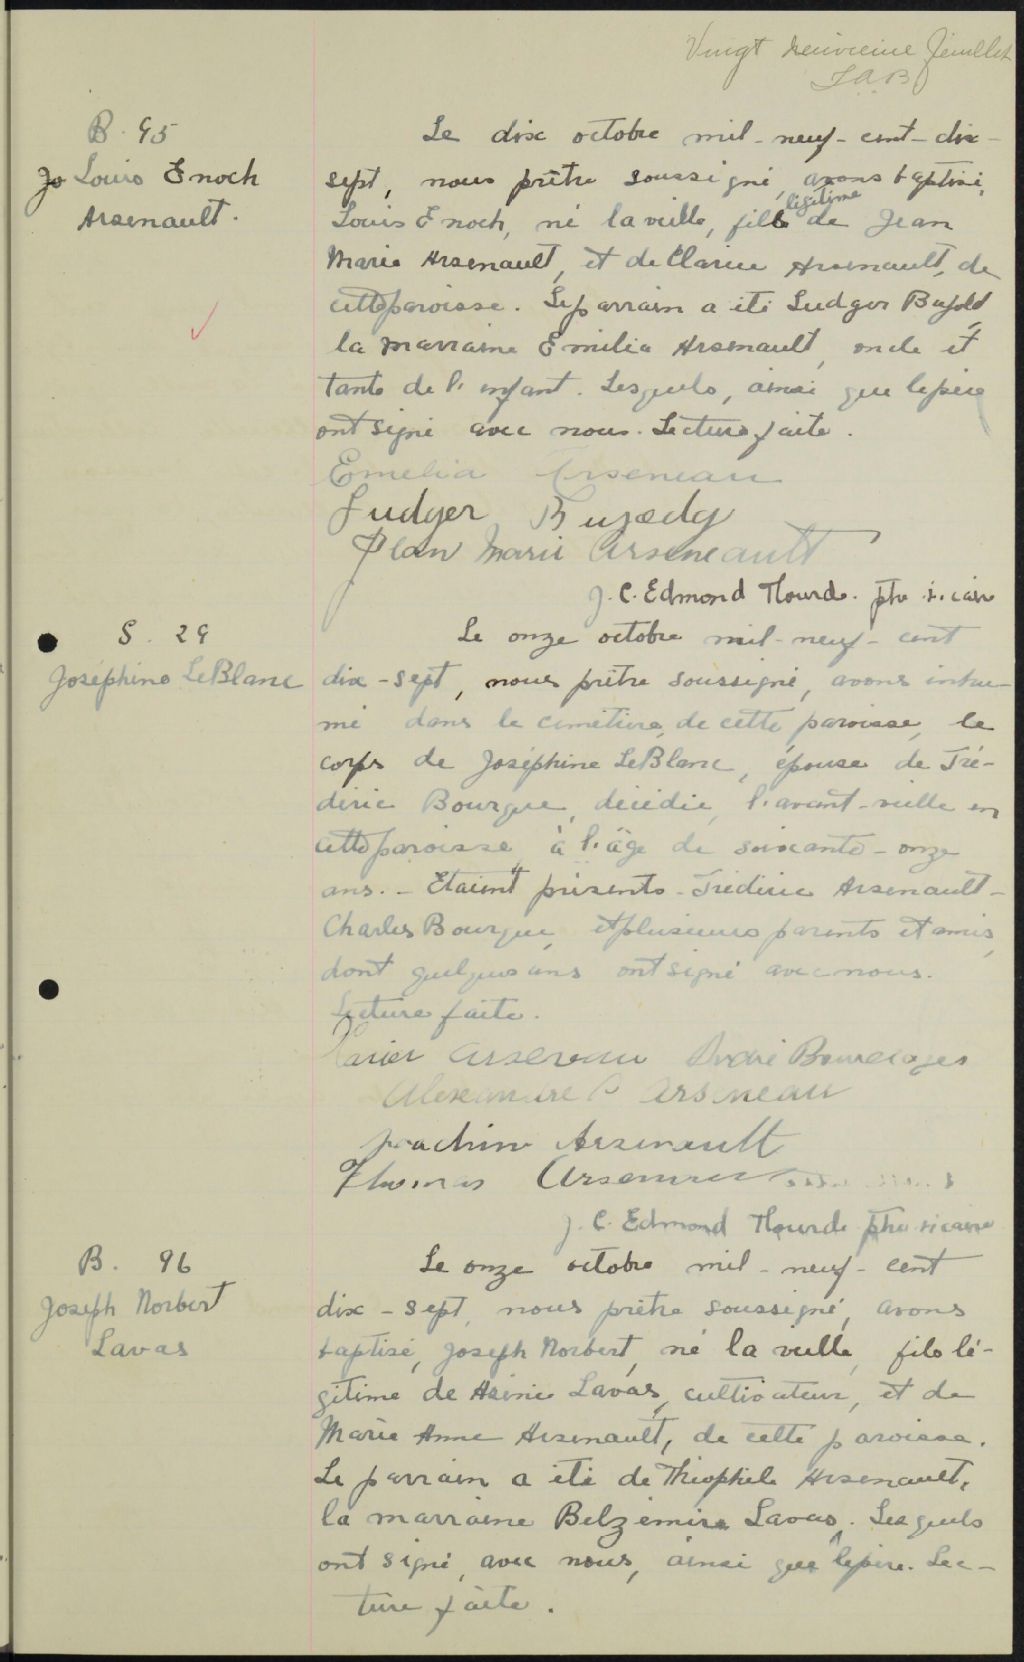 Vingt neuvième feuillet
J.A.B.
B. 95
Jo Louis Enoch
Arsenault.
Le dix octobre mil-neuf-cent-dix-
sept, nous prêtre soussigné, avons baptisé,
légitime
Louis Enoch, né la veille, fils de Jean
Marie Arsenault, et de Clarice Arsenault, de
cette paroisse. Le parrain a été Ludger Bujold,
la marraine Emélia Arsenault, oncle et
tante de l'enfant. Lesquels, ainsi que le père
ont signé avec nous. Lecture faite.
Emelia Arseneau
Ludger
Jean Marie Arseneault
J. C. Edmond Plourde. ptre vicaire
S. 29
Joséphine LeBlanc
Le onze octobre mil-neuf-cent
dix-sept, nous prêtre soussigné, avons inhu-
mé dans le cimetière de cette paroisse, le
corps de Joséphine LeBlanc, épouse de Fré-
déric Bourque, décédée, l'avant-veille en
cette paroisse à l'âge de soixante-onze
ans. - Etaient présents - Frédéric Arsenault -
Charles Bourque, et plusieurs parents et amis,
dont quelques uns ont signé avec nous.
Lecture faite.
Xavier Arseneau André Bourdages
Alexandre Arseneau
Joachim Arsenault
Thomas Arseneau
J. C. Edmond Plourde ptre vicaire
B. 96
Joseph Norbert
Lavas
Le onze octobre mil-neuf-cent
dix-sept, nous prêtre soussigné, avons
baptisé, Joseph Norbert, né la veille, fils lé-
gitime de Lavas, cultivateur, et de
Marie Anne Arsenault, de cette paroisse.
Le parrain a été de Théophile Arsenault,
la marraine Belzémire Lavas. Lesquels
ont signé, avec nous, ainsi que le père. Lec-
ture faite.